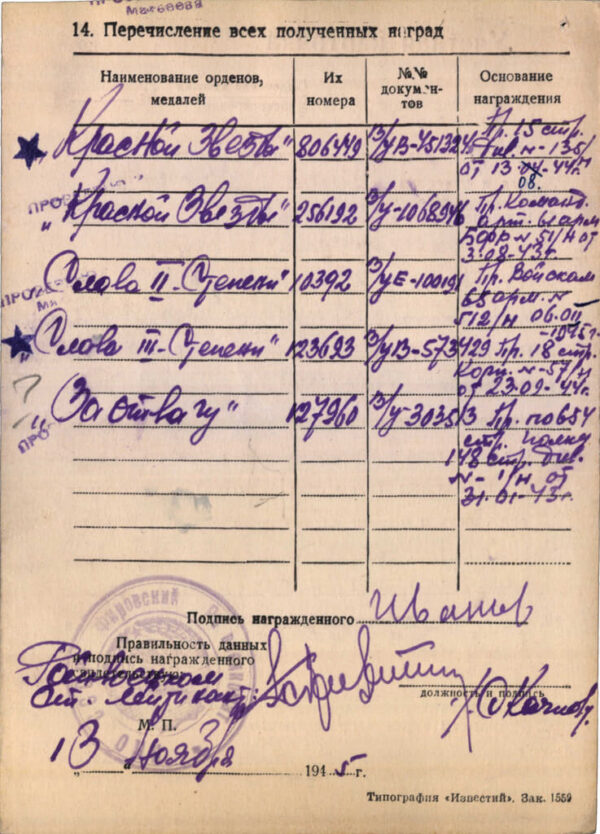 Матвеева
14. Перечисление всех полученных наград
Наименование орденов, медалей
Их номера
№№ документов
Основание награждения
„Красной Звезды" 806449 В/у В-451324 Пр. 15 стр.
див. н-135/
от 13-04-44г
08.
„Красной Звезды" 256192 В/у-1068946 Пр. Команд.
арт. 61 арм
БФР н-51/н от
3.08-43г.
Слава II-Степени" 10392 В/у Е-100191 Пр. Войскам
65 арм. н
512/н 06.04
-1945г.
„Слава III-Степени" 123693 В/у В-573429 Пр. 18 стр.
Корп. н-57/н
от 23-09-44г.
„За отвагу" 127960 В/у-303513 Пр. по 654
стр. полку
148 стр. див.
н-1/н от
31-01-43г.
Подпись награжденного Иванов
Правильность данных
и подпись награжденного
свидетельствую
Ст. Лейтенант:
должность и подпись
М. П.
„13" Ноября 1945 г.
Типография «Известий». Зак. 1559